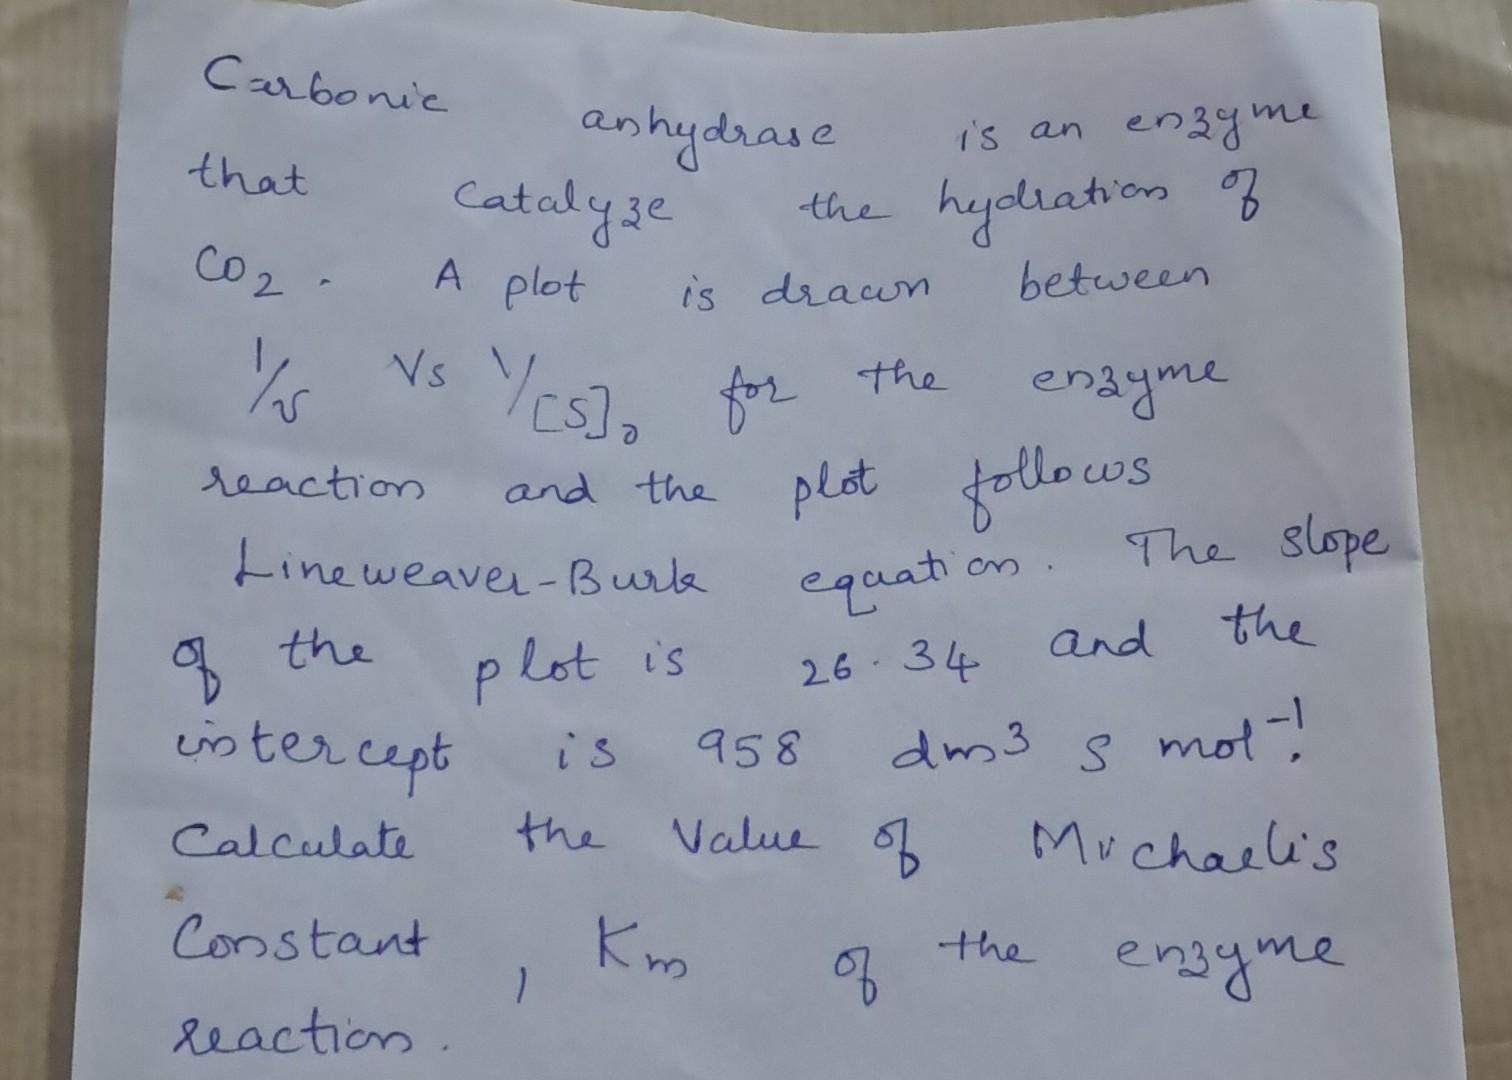 Carbonic anhydrase is an enzyme
that catalyze the hydration of
CO2. A plot is drawn between
1/v Vs 1/[S]0 for the enzyme
reaction and the plot follows
Lineweaver-Burk equation. The slope
of the plot is 26.34 and the
intercept is 958 dm3 s mol-1.
Calculate the Value of Michaelis
Constant, Km of the enzyme
reaction.